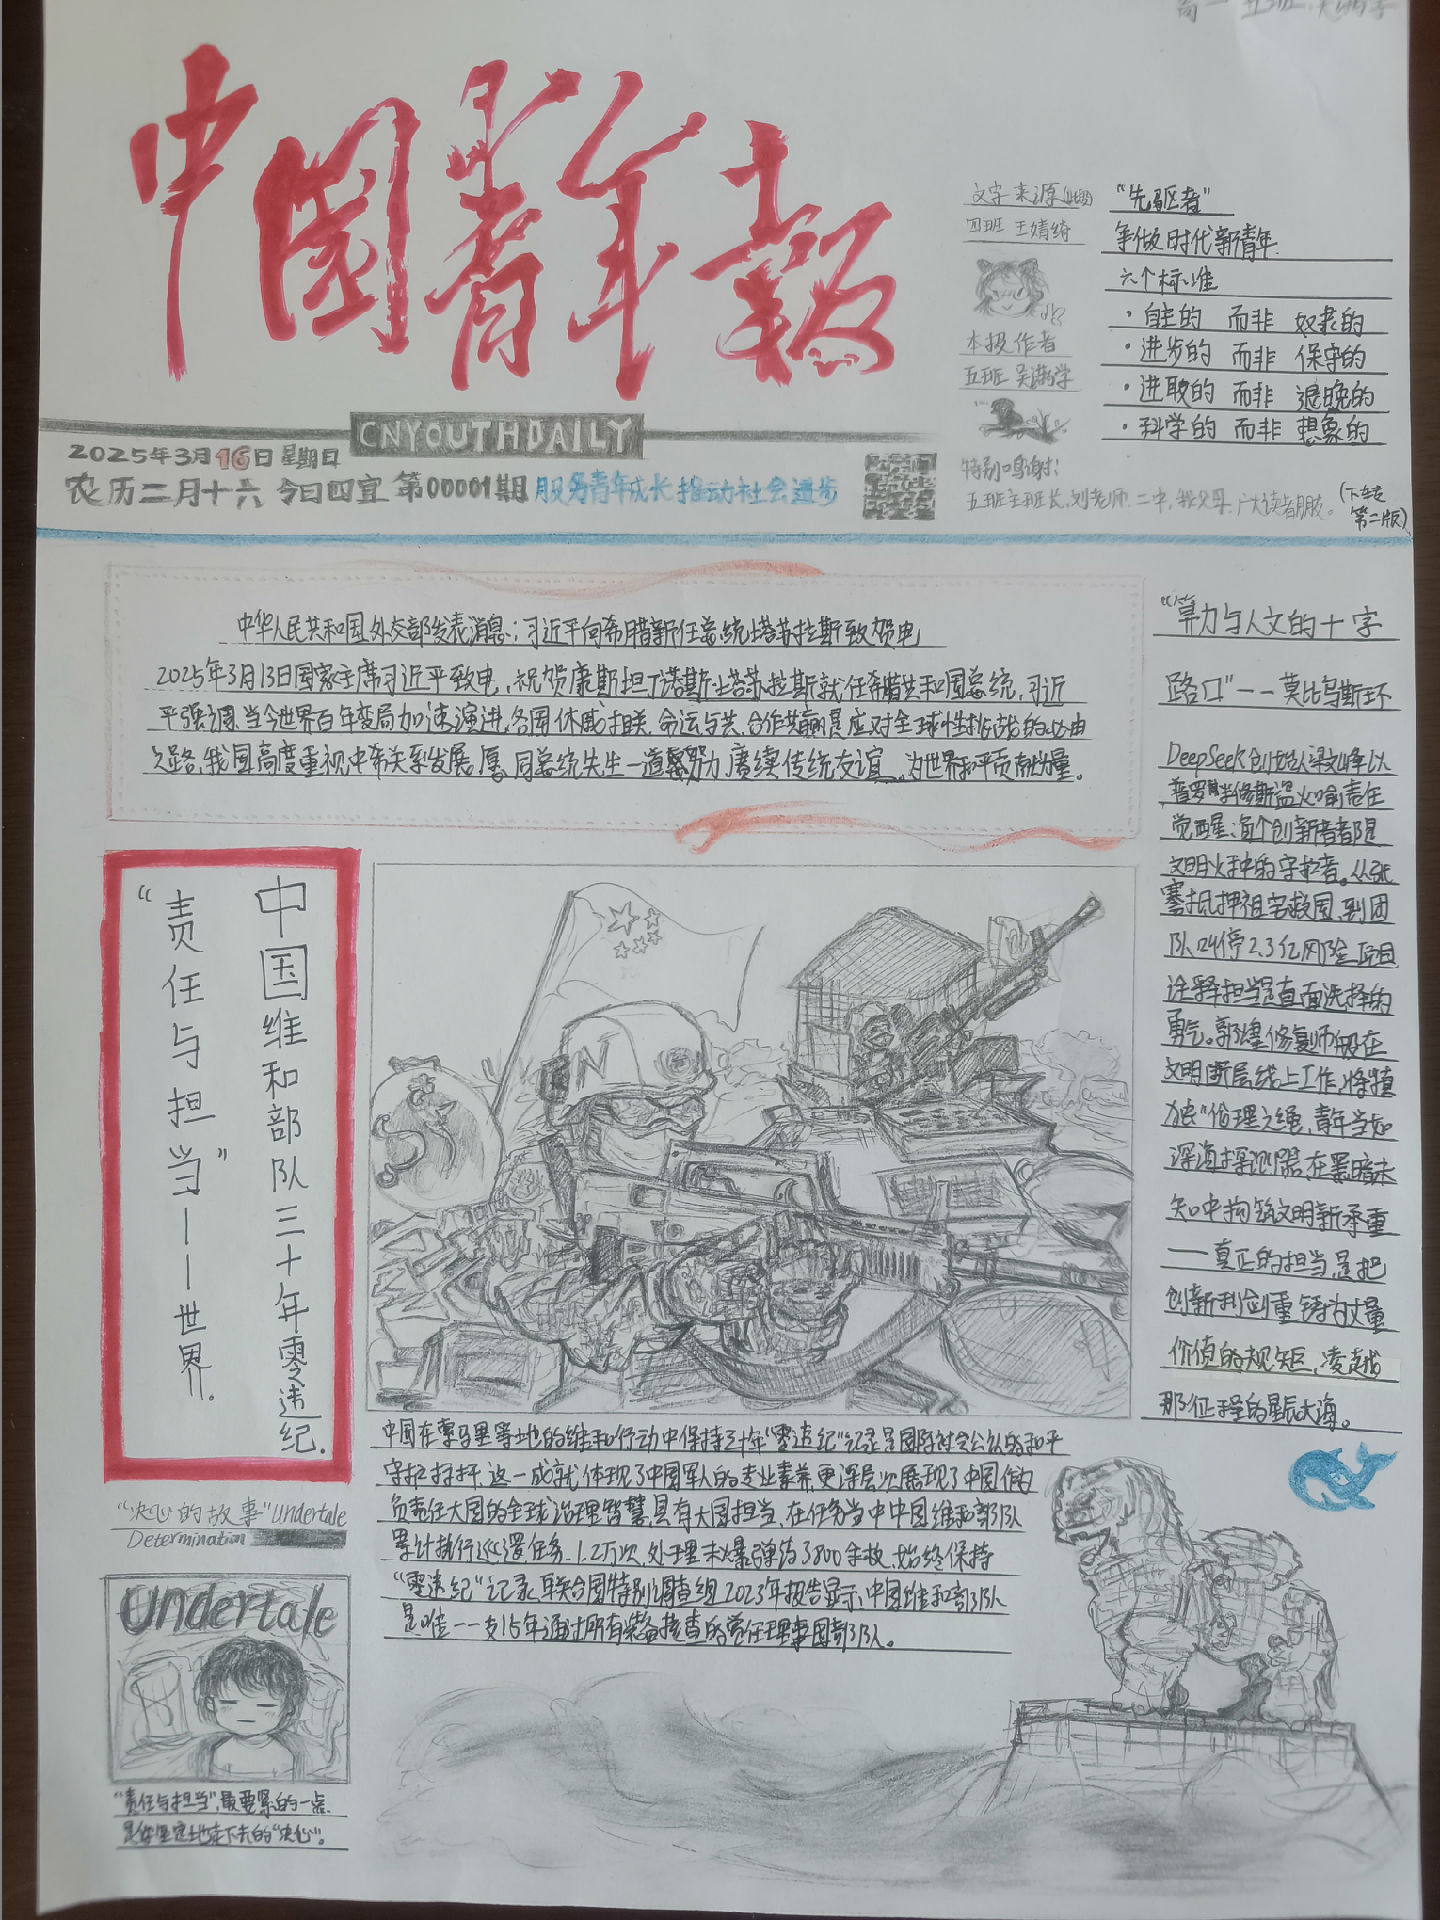 高一 五班
中国青年报
CNYOUTHDAILY
2025年3月16日 星期日
农历二月十六 今日四宜 第00001期 服务青年成长 推动社会进步
文字来源
四班 王婧绮
本报作者
五班 吴满学
特别鸣谢:
五班主班长,刘老师.二中.我父母.广大读者朋友。
(下转
第二版)
“先驱者”
争做时代新青年
六个标准
·自主的 而非 奴隶的
·进步的 而非 保守的
·进取的 而非 退晚的
·科学的 而非 想象的
中华人民共和国外交部发表消息:习近平向希腊新任总统塔苏拉斯致贺电
2025年3月13日国家主席习近平致电,祝贺康斯坦丁诺斯·塔苏拉斯就任希腊共和国总统,习近
平强调,当今世界百年变局加速演进,各国休戚相联,命运与共,合作共赢是应对全球性挑战的必由
之路,我国高度重视中希关系发展,愿同总统先生一道努力,赓续传统友谊,为世界和平贡献力量。
“算力与人文的十字
路口”——莫比乌斯环
DeepSeek创始人梁文峰以
普罗米修斯盗火喻责任
觉醒:每个创新者都是
文明火种的守护者。从张
謇抵押祖宅救国,到团
队叫停2.3亿风险项目
诠释担当是直面选择的
勇气。敦煌修复师般在
文明断层线上工作,将镇
为“伦理之绳,青年当如
深海探测器,在黑暗未
知中构筑文明新承重
——真正的担当,是把
创新利剑重铸为丈量
价值的规矩,凌越
那征程的星辰大海。
中国维和部队三十年零违纪.
“责任与担当”——世界.
中国在索马里等地的维和行动中保持三十年“零违纪”记录是国际社会公认的和平
守护标杆.这一成就体现了中国军人的专业素养,更深层次展现了中国作为
负责任大国的全球治理智慧,具有大国担当,在任务当中中国维和部队
累计执行巡逻任务 1.2万次,处理未爆弹药3800余枚,始终保持
“零违纪”记录,联合国特别调查组2023年报告显示,中国维和部队
是唯一一支15年通过所有装备核查的常任理事国部队。
“决心的故事”Undertale
Determination
Undertale
“责任与担当”,最要紧的一点
是你坚定地走下去的“决心”。